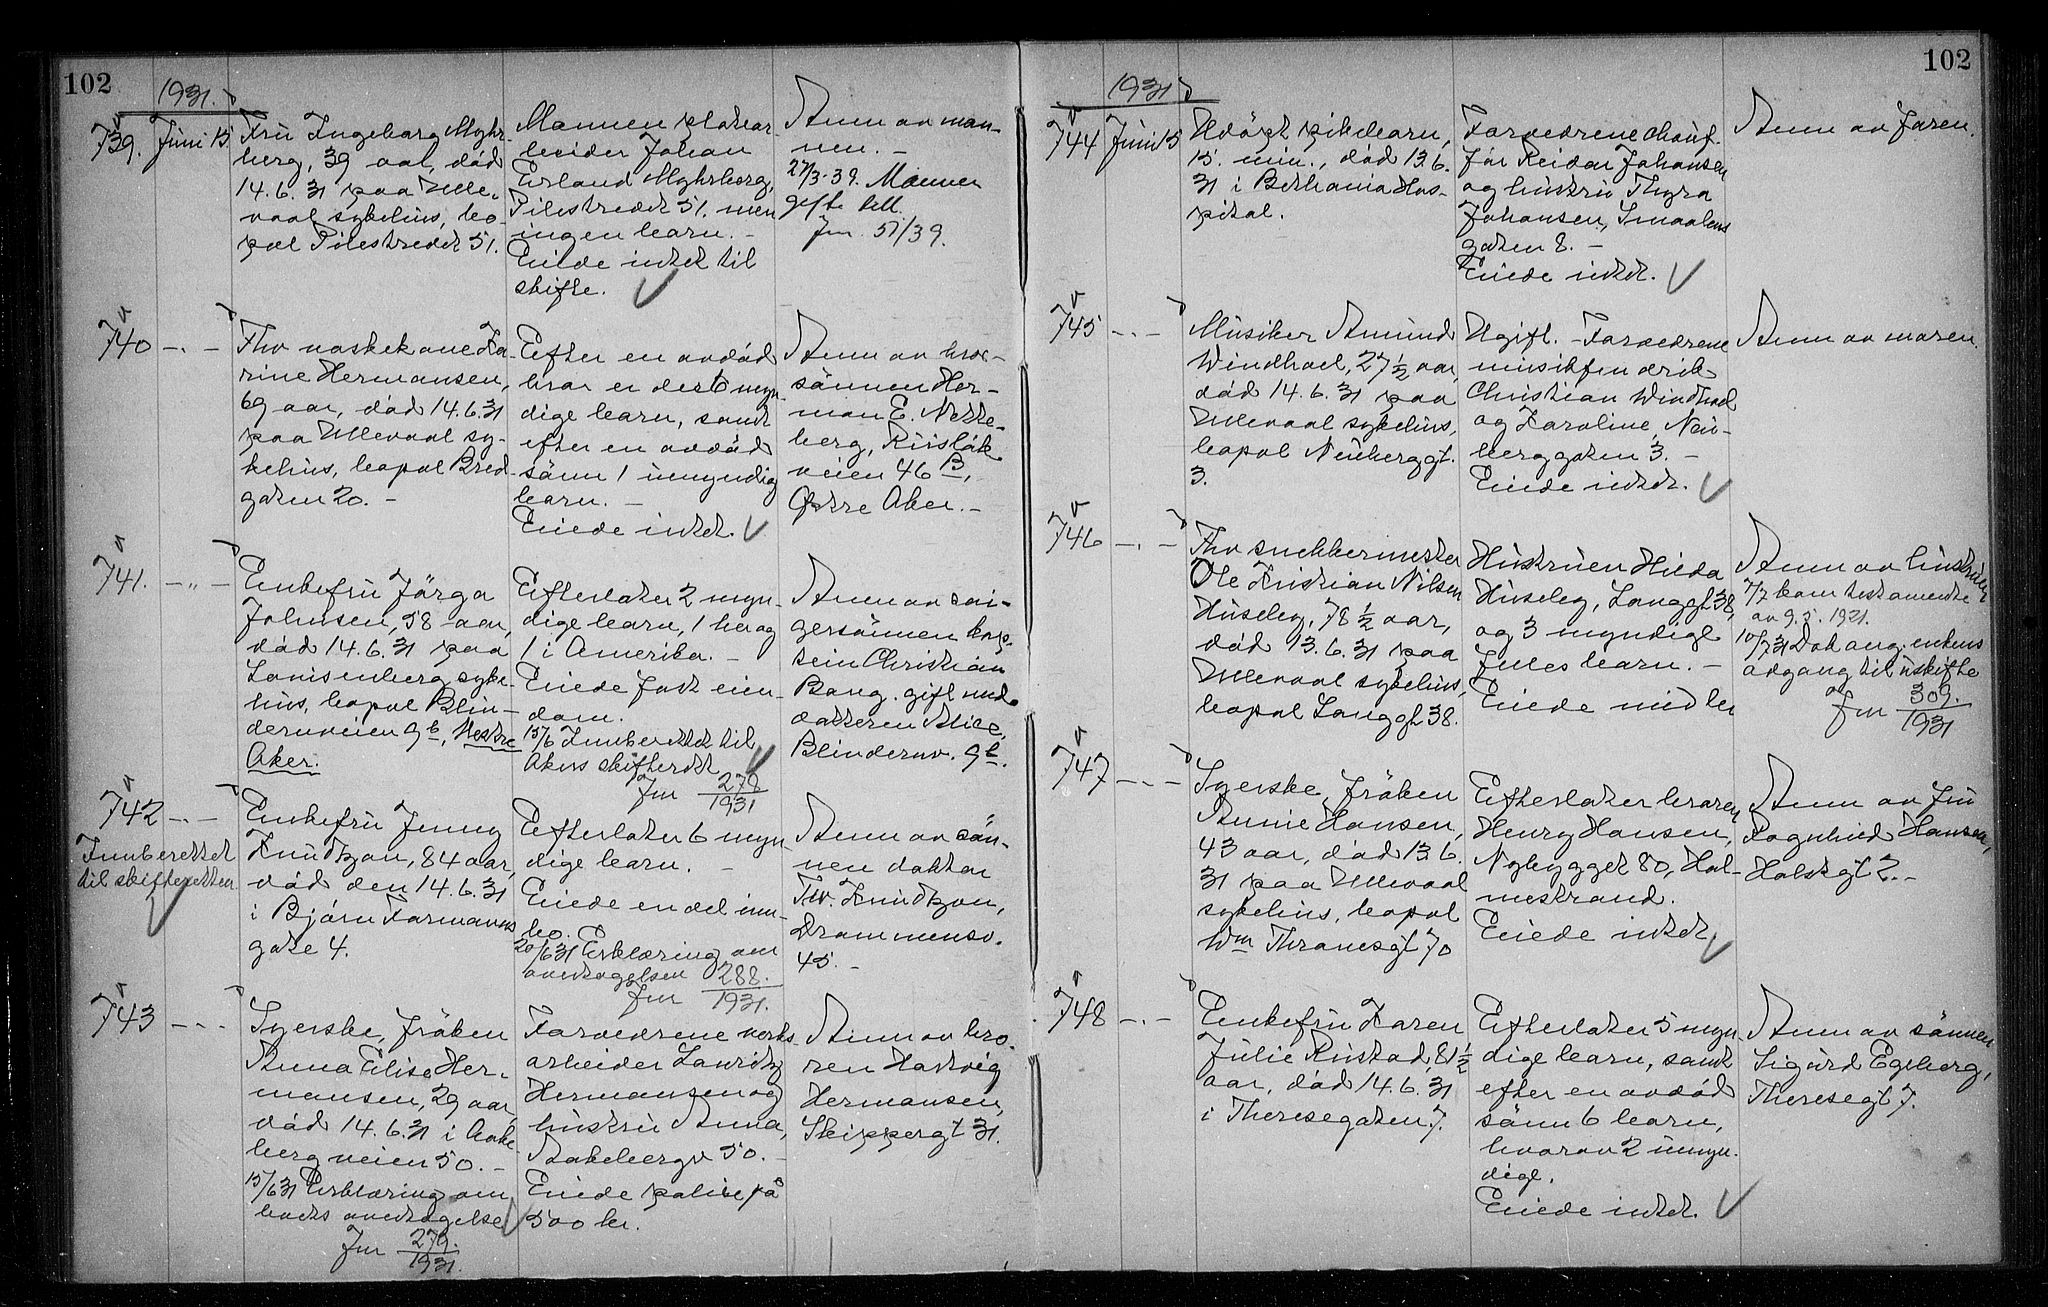 102
1931.
739. Juni 15.
Fru Ingeborg Myhr-
berg, 39 aar, død
14.6.31 paa Ulle-
vaal sykehus, bo-
pæl Pilestredet 51.
Mannen platear-
beider Johan
Erland Myhrberg,
Pilestredet 51. men
ingen barn. -
Eiede intet til
skifte.
Anm av man-
nen. -
27/3-39. Mannen
gifte sell.
Jnr. 57/39.
740 -..-
Fhv vaskekone Ka-
rine Hermansen,
69 aar, død 14.6.31
paa Ullevaal sy-
kehus, bopæl Bred-
gaten 20. -
Efter en avdød
bror er det 6 myn-
dige barn, samt
efter en avdød
sønn 1 umyndig
barn. -
Eiede intet.
Anm av bror-
sønnen Her-
man E. Nette-
berg, Riisløk-
veien 46 B,
Østre Aker. -
741. -„-
Enkefru Jørga
Johnsen, 58 aar,
død 14.6.31 paa
Lovisenberg syke-
hus, bopæl Blin-
dernveien 9b, Vestre
Aker.
Efterlater 2 myn-
dige barn, 1 her og
1 i Amerika. -
Eiede fast eien-
dom.
15/6 Innberettet til
Akers skifterett
Jnr 278/1931
Anm av svi-
gersønnen kap-
tein Christian
Bang. gift med
datteren Alice,
Blindernv. 9b.
742 -..-
Innberettet
til skifteretten
Enkefru Jenny
Knudtzon, 84 aar,
død den 14.6.31
i Bjørn Farmanns
gate 4.
Efterlater 6 myn-
dige barn. -
Eiede en del inn-
bo.
20/6 31 Erklæring om
overtagelsen
Jnr 288./1931.
Anm av søn-
nen doktor
Th. Knudtzon,
Drammensv.
45. -
743 -..-
Syerske, frøken
Anna Elise Her-
mansen, 29 aar,
død 14.6.31 i Aake
bergveien 50. -
15/6 31 Erklæring om
boets overtagelse
Jnr 279./1931.
Forældrene verks-
arbeider Lauritz
Hermansen og
hustru Anna,
Aakebergv 50. -
Eiede polise på
500 kr.
Anm av bro-
ren Hartvig
Hermansen,
Skippergt 31.
102
1931
744 Juni 15
Udøpt pikebarn,
15. min., død 13.6.
31 i Bethania Hos-
pital.
Forældrene chauf-
før Reidar Johansen
og hustru Thyra
Johansen, Smaalens
gaten 8. -
Eiede intet.
Anm av faren.
745 -..-
Musiker Amund
Windhoel, 27 1/2 aar,
død 14.6.31 paa
Ullevaal sykehus,
bopæl Neuberggt.
3.
Ugift. - Forældrene
musikfendrik
Christian Windhoel
og Karoline, Neu-
berggaten 3. -
Eiede intet.
Anm av moren.
746 -..-
Fhv snekkermester
Ole Kristian Nilsen
Huseby, 78 1/2 aar,
død 13.6.31 paa
Ullevaal sykehus,
bopæl Langgt 38.
Hustruen Hilda
Huseby, Langgt 38,
og 3 myndige
felles barn. -
Eiede midler
Anm av hustruen
7/7 kom testamente
av 9.5.1921.
10/7 31 Dok ang. enkens
adgang til uskifte
Jnr 309./1931
747 -..-
Syerske, frøken
Annie Hansen,
43 aar, død 13.6.
31 paa Ullevaal
sykehus, bopæl
Wm Thranesgt 70
Efterlater broren
Henry Hansen,
Nybygget 80, Hol-
mestrand.
Eiede intet
Anm av fru
Ragnhild Hansen,
Holstgt 2. -
748 -..-
Enkefru Karen
Julie Rustad, 81 1/2
aar, død 14.6.31
i Theresegaten 7.
Efterlater 5 myn-
dige barn, samt
efter en avdød
sønn 6 barn,
hvorav 2 umyn-
dige.
Eiede intet.
Anm av sønnen
Sigurd Egeberg,
Theresegt 7.